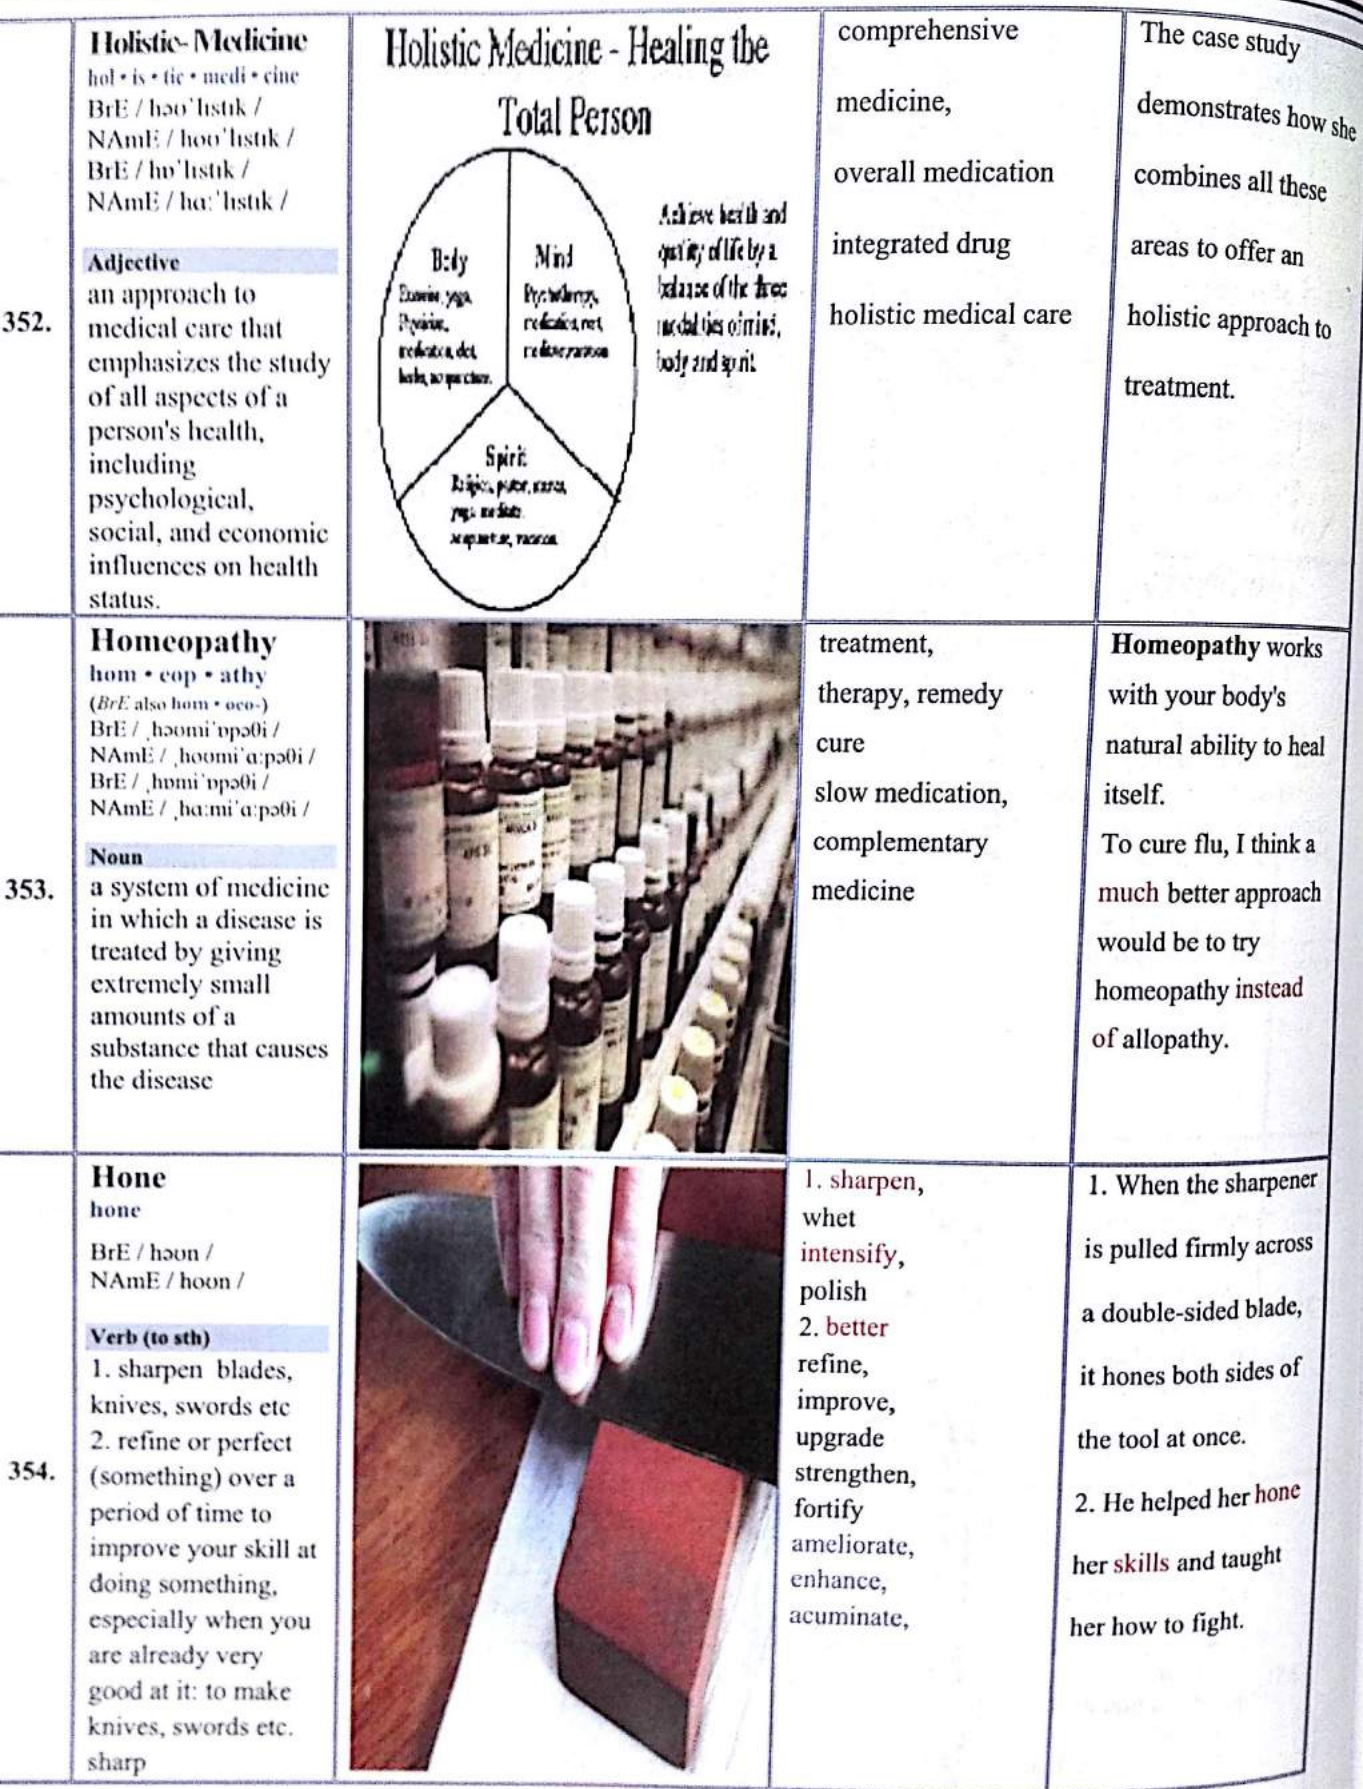 352.
Holistic-Medicine
hol • is • tic • medi • cine
BrE / həʊˈlɪstɪk /
NAmE / hoʊˈlɪstɪk /
BrE / hɒˈlɪstɪk /
NAmE / hɑːˈlɪstɪk /
Adjective
an approach to
medical care that
emphasizes the study
of all aspects of a
person's health,
including
psychological,
social, and economic
influences on health
status.
Holistic Medicine - Healing the
Total Person
Body
Mind
Psychotherapy,
Spirit
Achieve health and
quality of life by a
balance of the three
modalities of mind,
body and spirit
comprehensive
medicine,
overall medication
integrated drug
holistic medical care
The case study
demonstrates how she
combines all these
areas to offer an
holistic approach to
treatment.
353.
Homeopathy
hom • eop • athy
(BrE also hom • oeo-)
BrE / ˌhəʊmiˈɒpəθi /
NAmE / ˌhoʊmiˈɑːpəθi /
BrE / ˌhɒmiˈɒpəθi /
NAmE / ˌhɑːmiˈɑːpəθi /
Noun
a system of medicine
in which a disease is
treated by giving
extremely small
amounts of a
substance that causes
the disease
treatment,
therapy, remedy
cure
slow medication,
complementary
medicine
Homeopathy works
with your body's
natural ability to heal
itself.
To cure flu, I think a
much better approach
would be to try
homeopathy instead
of allopathy.
354.
Hone
hone
BrE / həʊn /
NAmE / hoʊn /
Verb (to sth)
1. sharpen blades,
knives, swords etc
2. refine or perfect
(something) over a
period of time to
improve your skill at
doing something,
especially when you
are already very
good at it: to make
knives, swords etc.
sharp
1. sharpen,
whet
intensify,
polish
2. better
refine,
improve,
upgrade
strengthen,
fortify
ameliorate,
enhance,
acuminate,
1. When the sharpener
is pulled firmly across
a double-sided blade,
it hones both sides of
the tool at once.
2. He helped her hone
her skills and taught
her how to fight.